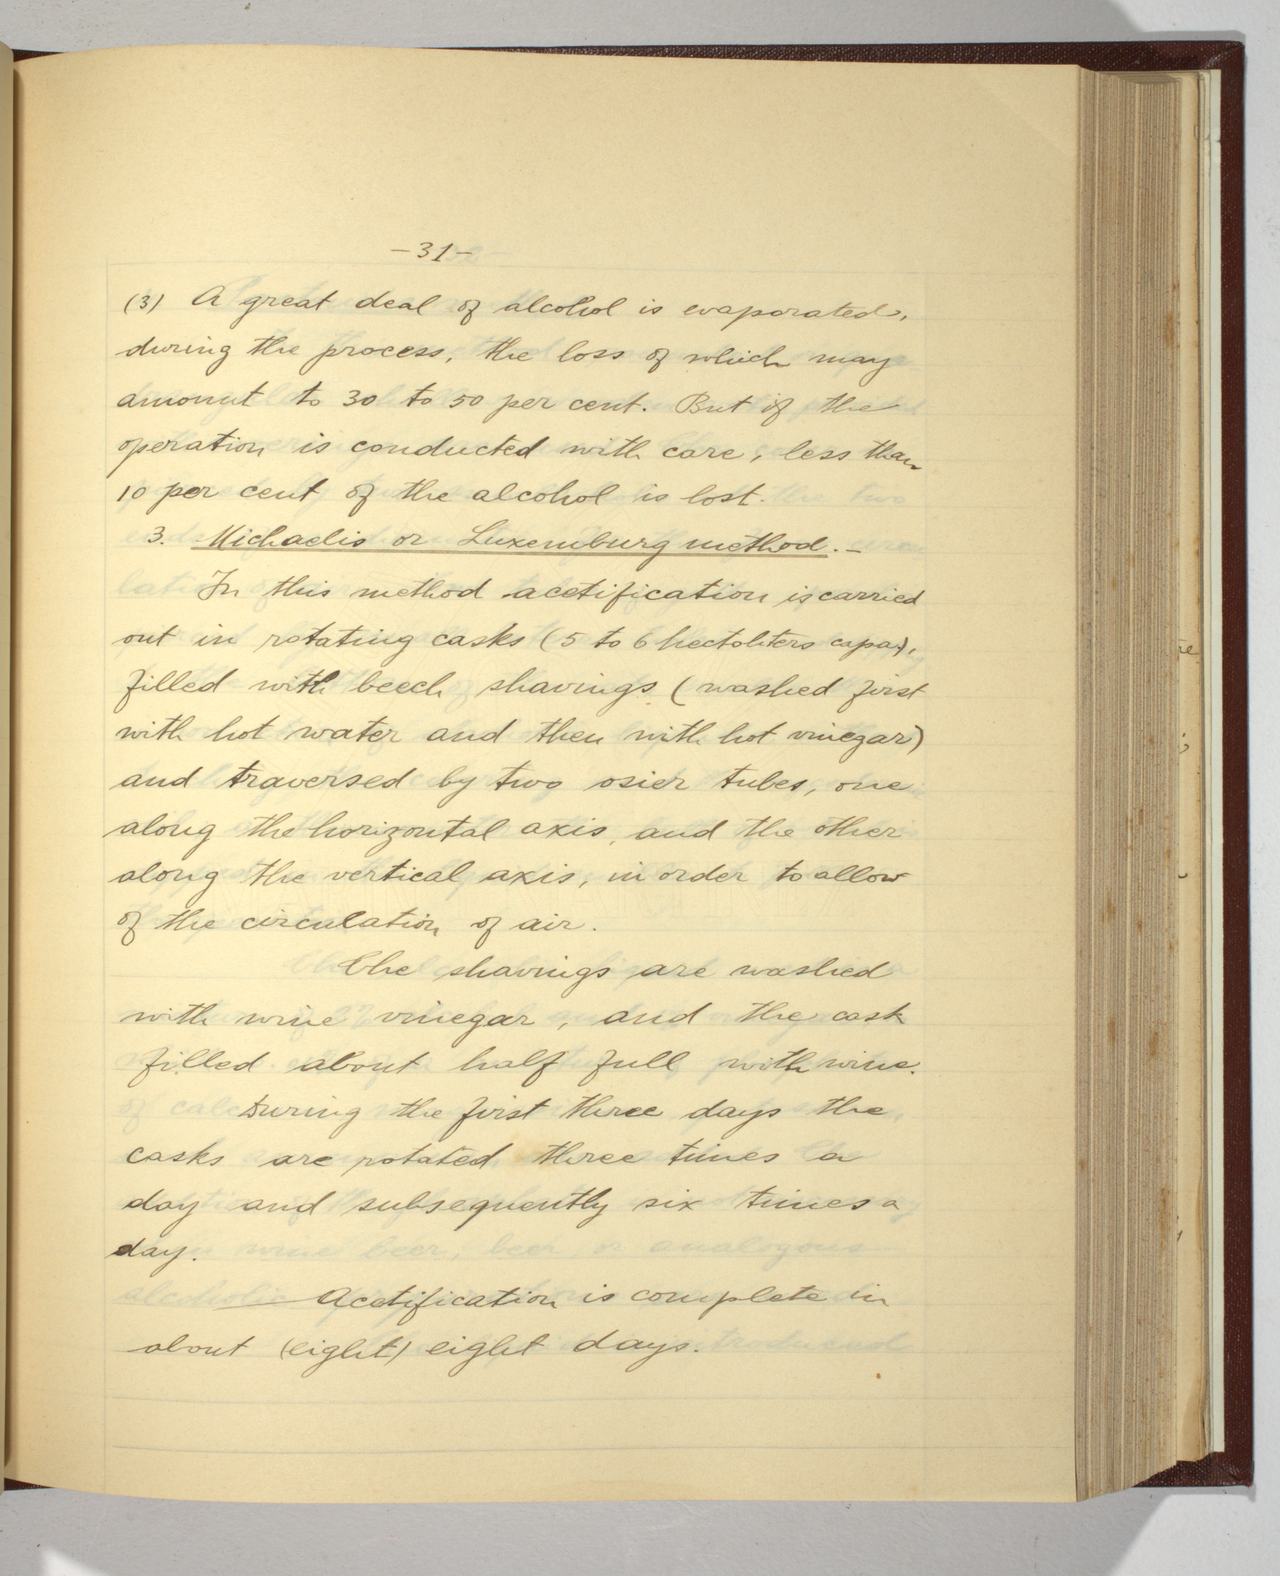 -31-
(3) A great deal of alcohol is evaporated,
during the process, the loss of which may
amount to 30 to 50 per cent. But if the
operation is conducted with care, less than
10 per cent of the alcohol is lost.
3. Michaelis or Luxemburg method.-
In this method acetification is carried
out in rotating casks (5 to 6 hectoliters capa),
filled with beech shavings (washed first
with hot water and then with hot vinegar)
and traversed by two osier tubes, one
along the horizontal axis, and the other
along the vertical axis, in order to allow
of the circulation of air.
The shavings are washed
with wine vinegar, and the cask
filled about half full with wine.
During the first three days the
casks are rotated three times a
day and subsequently six times a
day.
Acetification is complete in
about (eight) eight days.